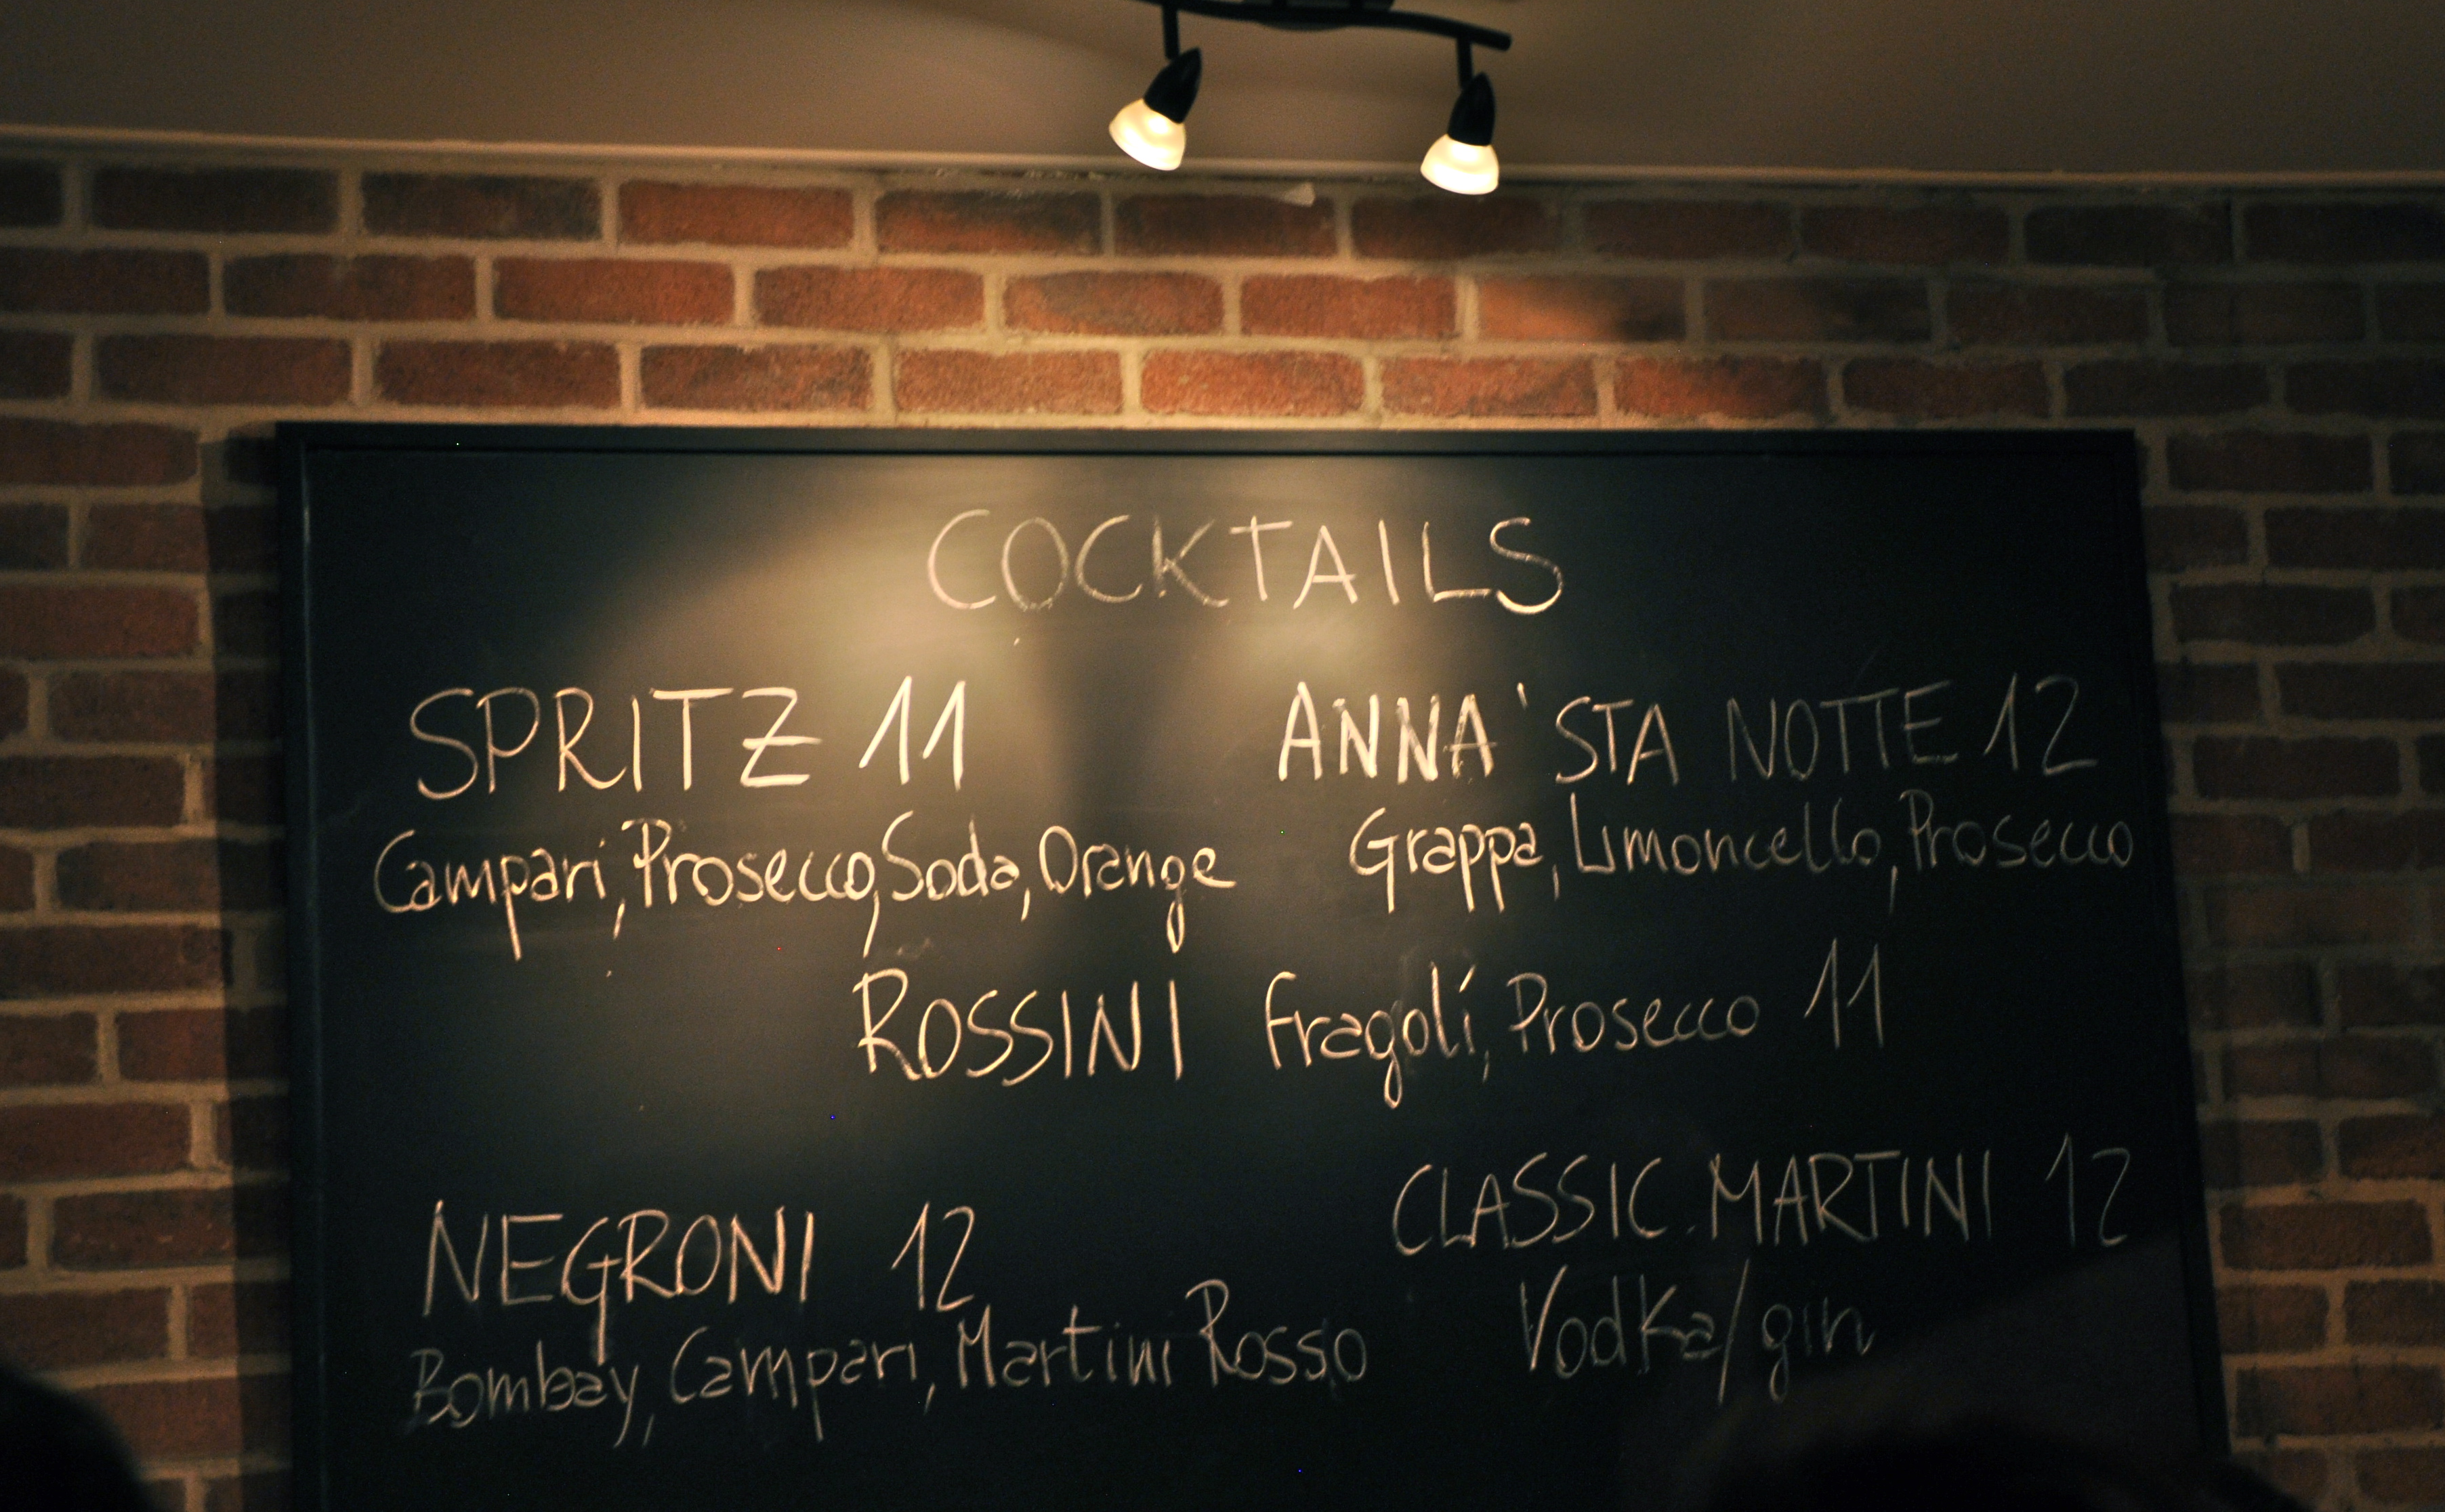 COCKTAILS
SPRITZ 11
Campari, Prosecco, Soda, Orange
ANNA 'STA NOTTE 12
Grappa, Limoncello, Prosecco
ROSSINI Fragolí, Prosecco 11
NEGRONI 12
Bombay, Campari, Martini Rosso
CLASSIC MARTINI 12
Vodka/gin